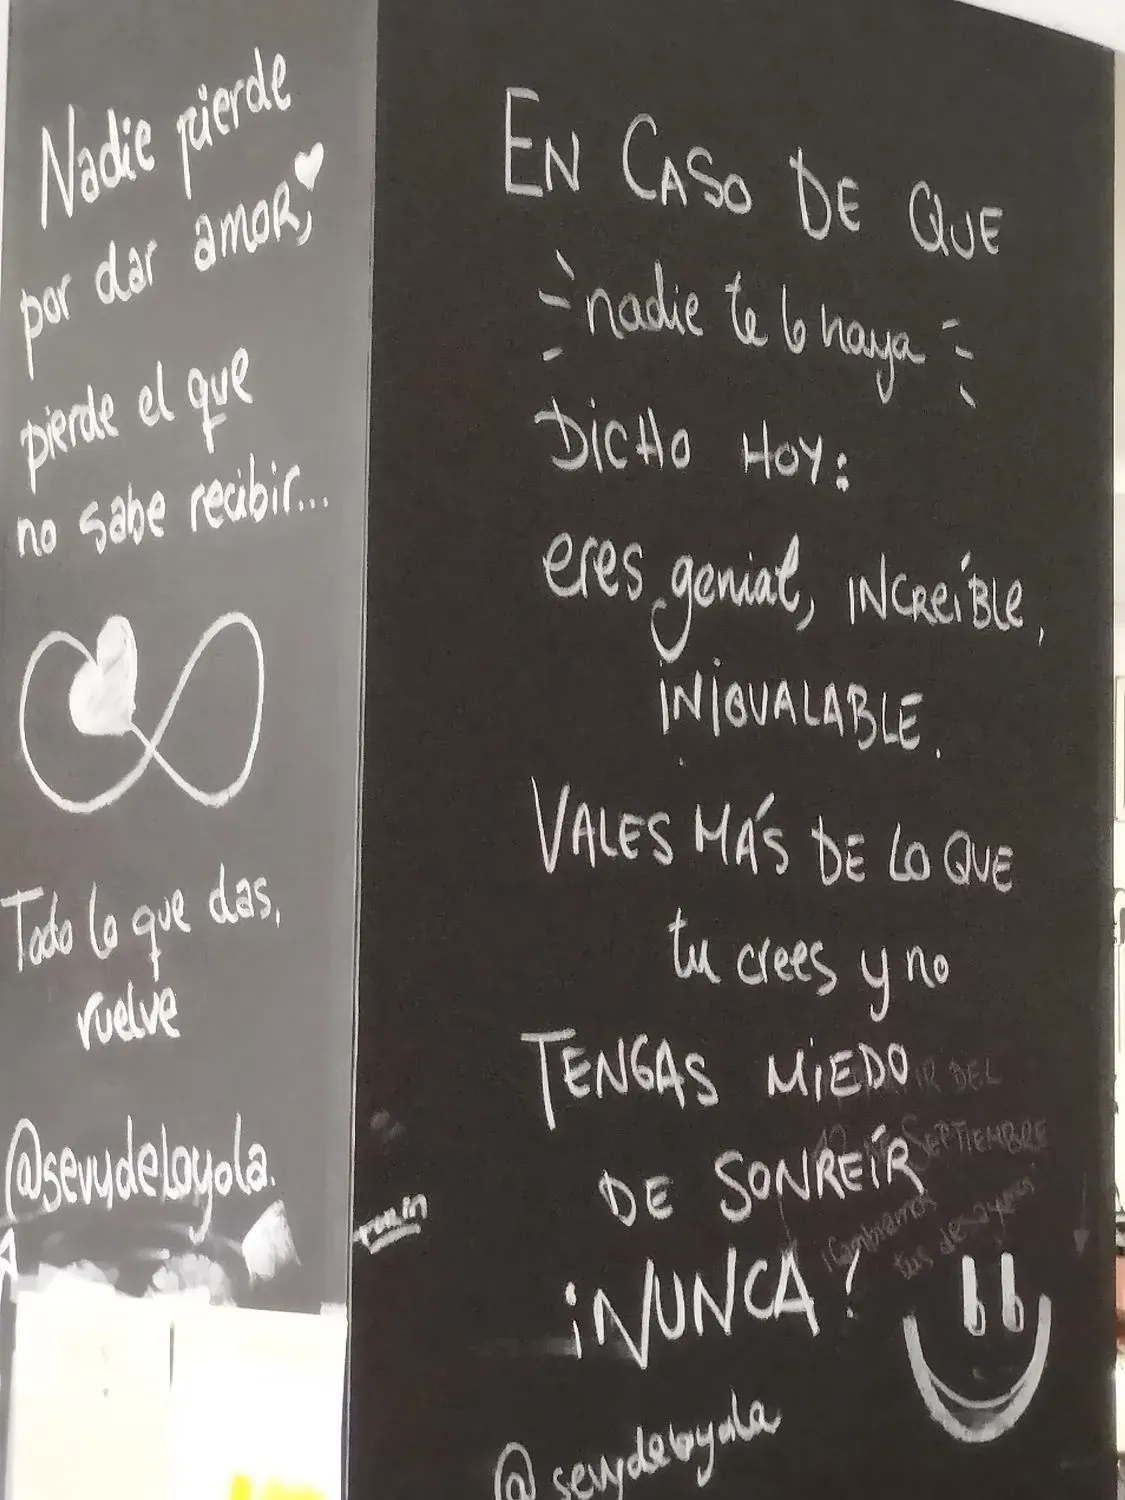 Nadie pierde
por dar amor,
pierde el que
no sabe recibir...
Todo lo que das,
vuelve
@sevydeLoyola.
EN CASO DE QUE
nadie te lo haya
DICHO HOY:
eres genial, INCREÍBLE,
INIGUALABLE.
VALES MÁS DE LO QUE
tu crees y no
TENGAS MIEDO
DE SONREÍR
¡NUNCA!
@sevydeloyola
DEL
SEPTIEMBRE
¡Cambiamos
tus desayunos